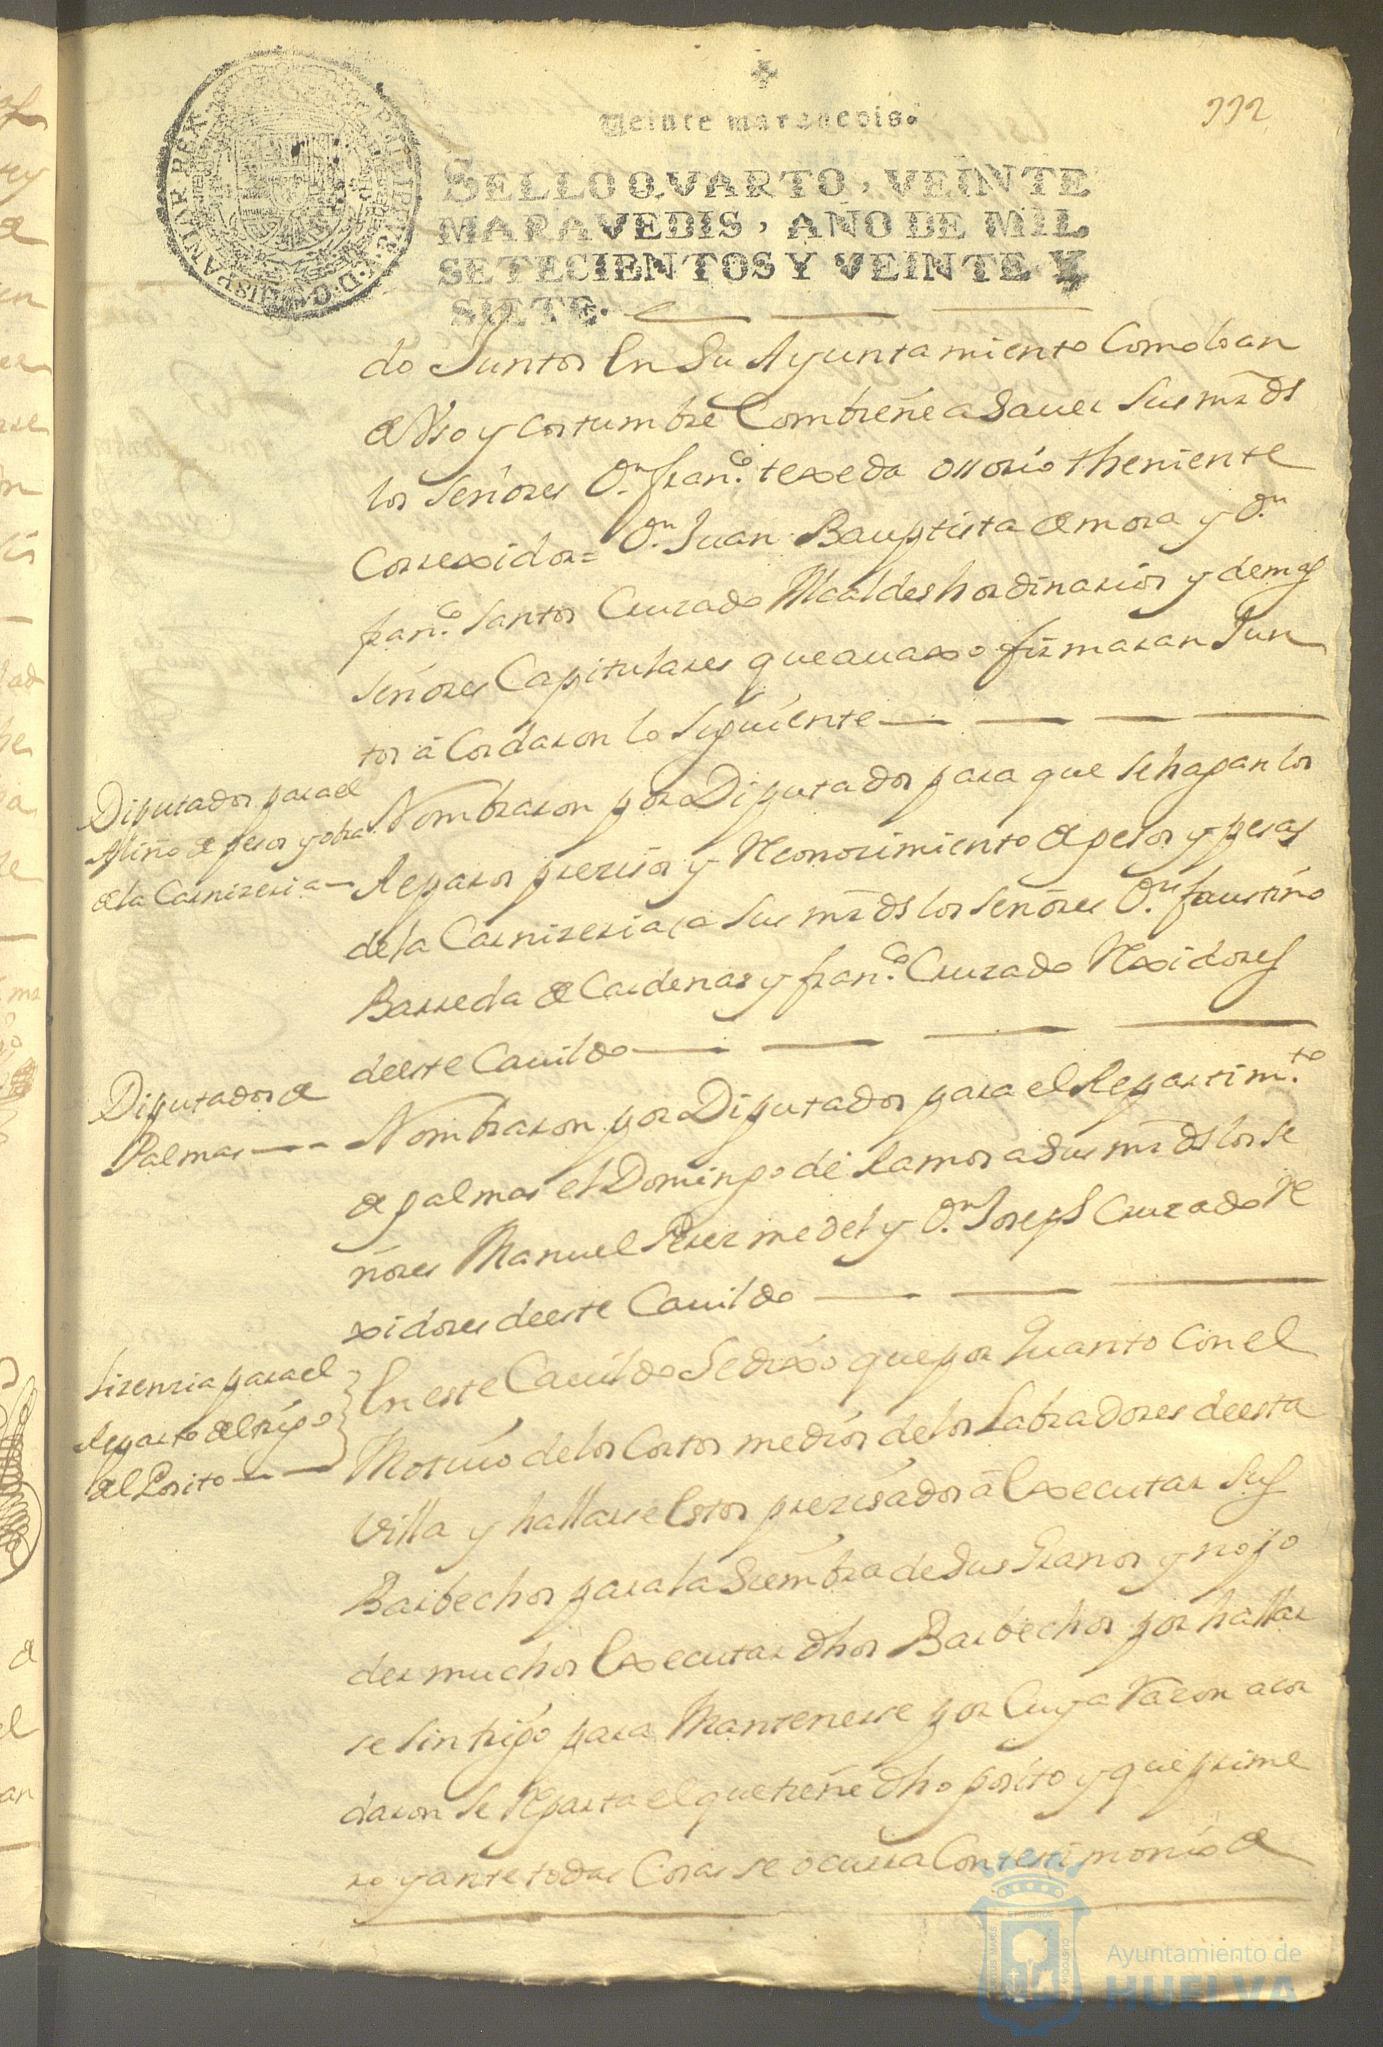 332
Veinte maravedis.
SELLO QVARTO, VEINTE
MARAVEDIS, AÑO DE MIL
SETECIENTOS Y VEINTE Y
SIETE.
PHILIPPUS V D G HISPANIAR REX
do Juntos En Su Ayuntamiento Como loan
de Vso y costumbre Combiene a Saver Sus mrds
los señores Dn franco texeda ossorio theniente
Correxidor = Dn Juan Bauptista de mora y Dn
franco Santos Cruzado Alcaldes hordinarios y demas
señores Capitulares que avaxo firmaran Jun
tos a Cordaron lo Siguiente
Diputados para el
Aliño de pesos y obra
de la Carnizeria
Nombraron por Diputados para que se hagan los
Reparos precisos y Reconozimiento de pesos y pesas
de la Carnizeria a sus mrds los señores Dn faustino
Barreda de Cardenas y franco Cruzado Rexidores
deeste Cavildo
Diputados de
Palmas
Nombraron por Diputados para el Repartimto
de palmas el Domingo de Ramos a Sus mrds los se
ñores Manuel Perez medel y Dn Joseph Cruzado Re
xidores deeste Cavildo
Lizenzia para el
Reparto del trigo
del Posito
En este Cavildo Se dixo que por Quanto Con el
Motivo de los Cortos medios de los Labradores deesta
Villa y hallarse Estos prezisados a Executar Sus
Barbechos para la Siembra de Sus Granos y no po
der muchos Executar dhos Barbechos por hallar
se Sin trigo para Mantenerse por Cuya Razon acor
daron se Reparta el que tiene dho posito y que prime
ro y ante todas Cosas se ocurra Con testimonio de
Ayuntamiento de
HUELVA